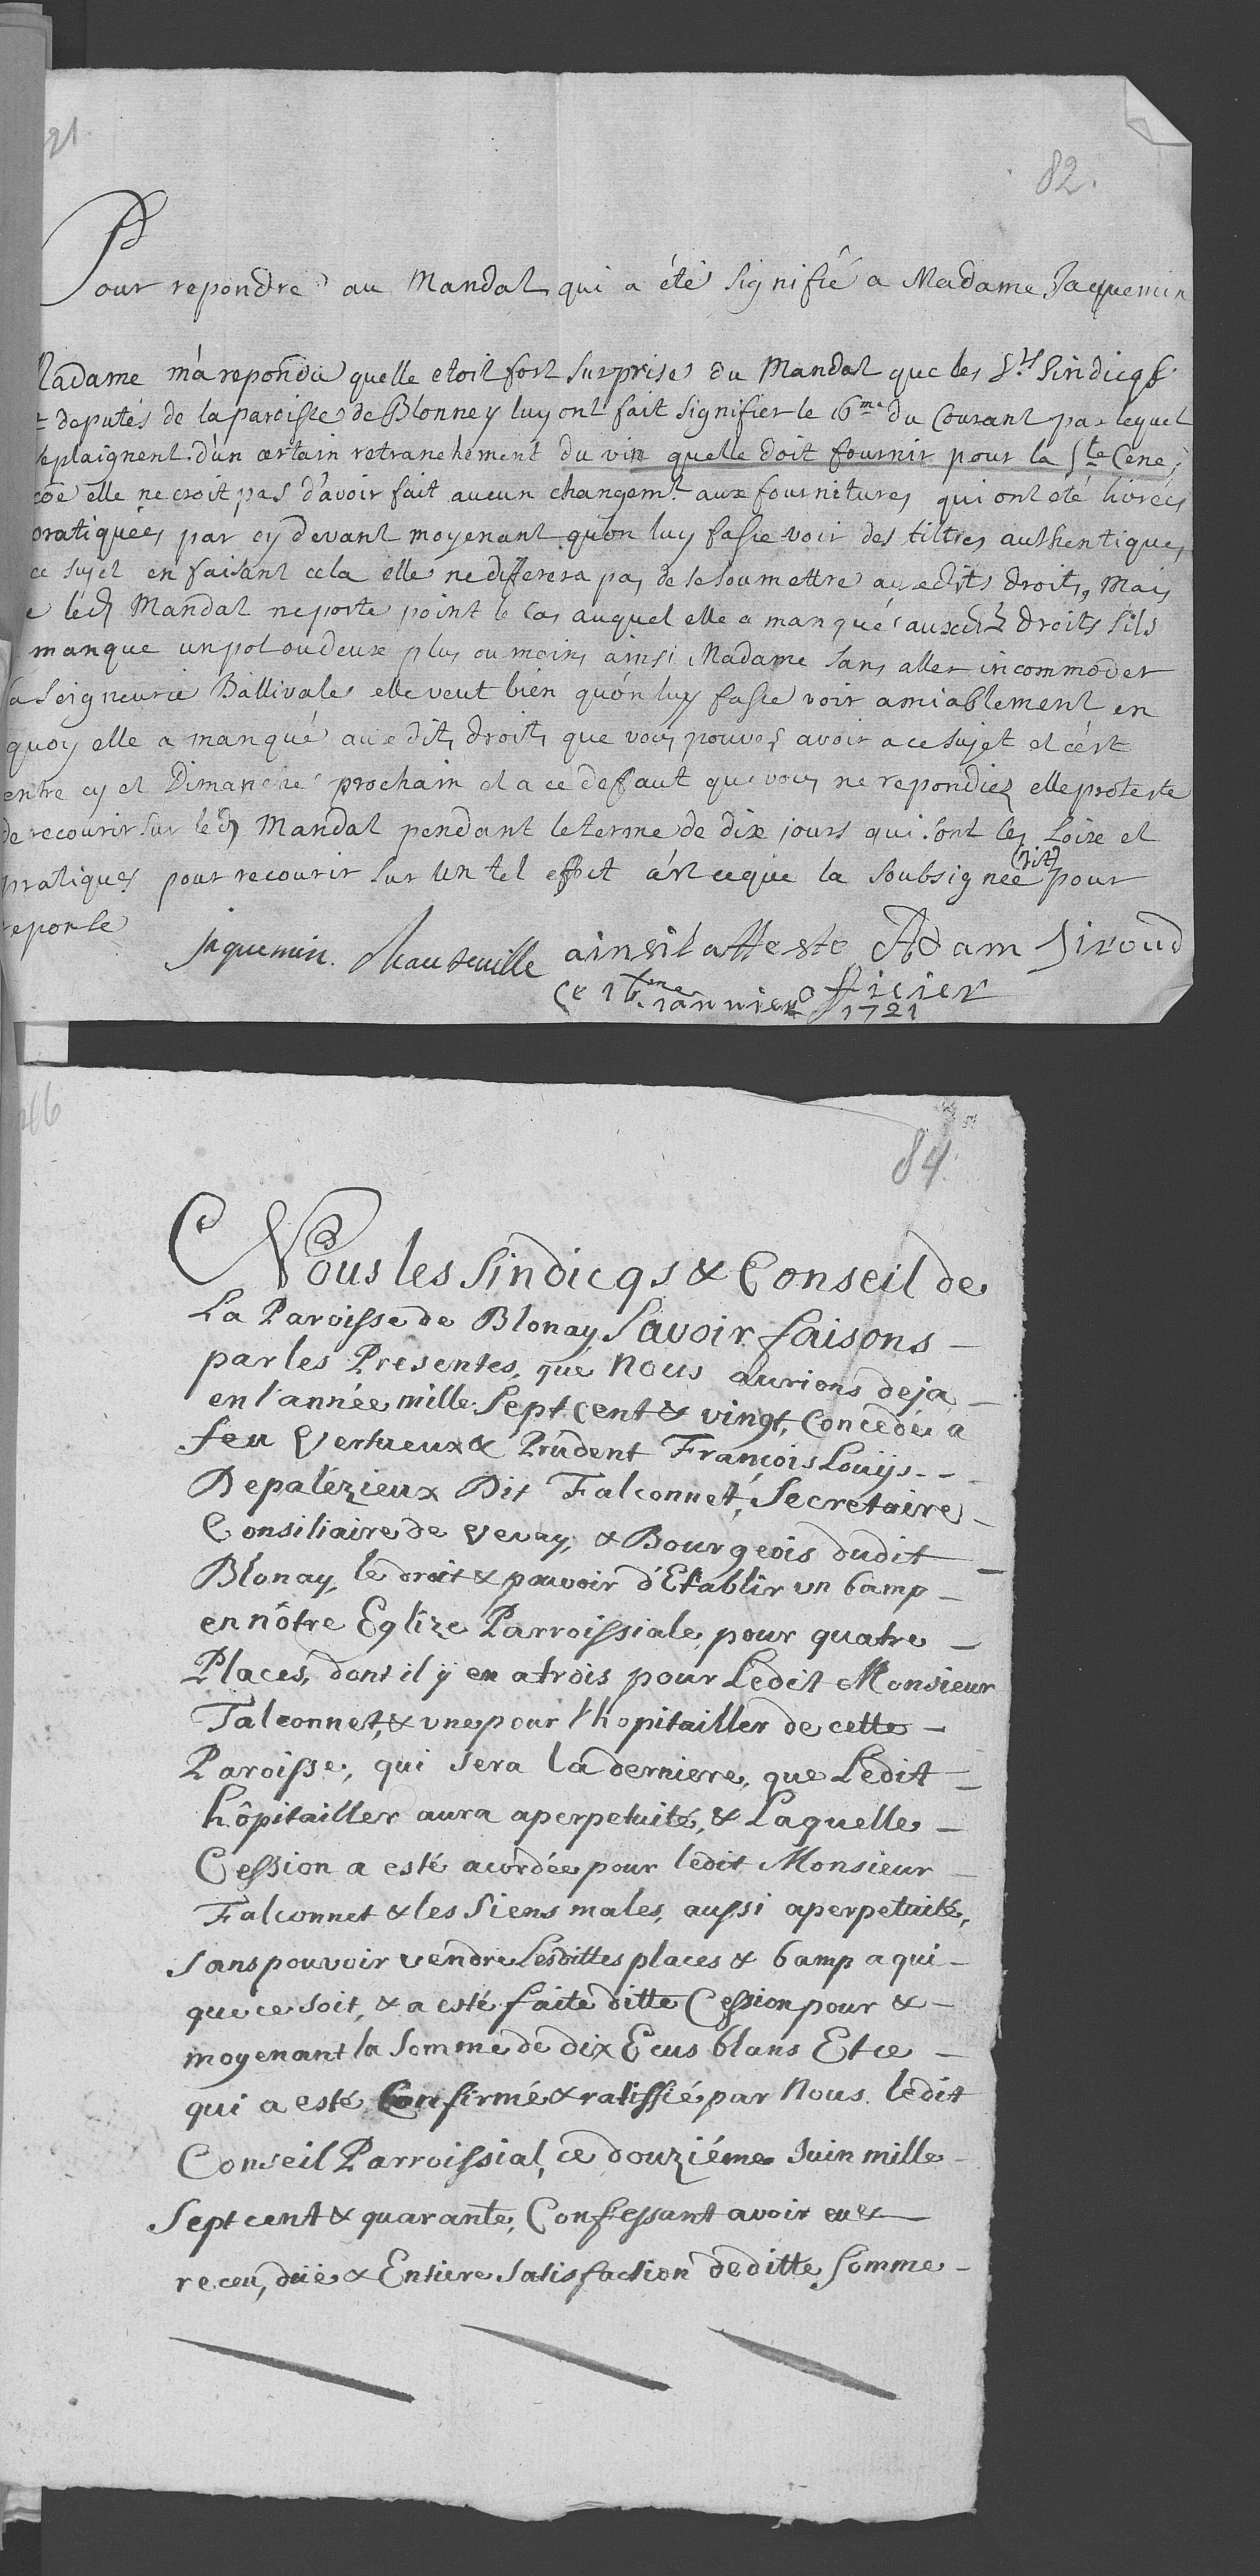 21.
82.
Pour repondre au Mandat qui a été signifié a Madame Jaquemin
Madame m'a repondu quelle etoit fort surprise du Mandat que les Srs Sindicqs
et deputés de la paroisse de Blonney luy ont fait signifier le 16me du Courant par lequel
se plaignent d'un certain retranchement du vin quelle doit fournir pour la Ste Cene,
coe elle ne croit pas d'avoir fait aucun changemt aux fournitures qui ont eté livrées
pratiquées par cy devant moyenant qu'on luy fasse voir des tiltres authentiques
ce sujet en faisant cela elle ne differera pas de se soumettre auxdits droits, Mais
e led Mandat ne porte point le Cas auquel elle a manqué auxd droits sils
manque un pot ou deux plus ou moins ainsi Madame sans aller incommoder
la Seigneurie Ballivale elle veut bien qu'on luy fasse voir amiablement en
quoy elle a manqué auxdits droits que vous pouvés avoir a ce sujet et c'est
entre cy et Dimanche prochain et a ce defaut que vous ne repondiez elle proteste
de recourir sur led Mandat pendant le terme de dix jours qui sont les Loix et
pratiques pour recourir sur un tel effet c'est ce que la soubsignée (dit) pour
reponse
Jaquemin. ainsi latteste Adam Giroud
Ce 16.me iannvier officier
1721
46
84.
Nous les Sindicqs & Conseil de
La Paroisse de Blonay, Savoir faisons –
par les Presentes, que Nous aurions deja –
en l'année mille Sept Cent & vingt, Concedé a
feu Vertueux & Prudent François Louijs – –
Depalézieux Dit Falconnet, Secretaire –
Consiliaire de Vevay, & Bourgeois dudit –
Blonay, le droit & pouvoir d'Etablir un bamp –
en nôtre Eglize Parroissiale, pour quatre –
Places, dont il ÿ en a trois pour Ledit Monsieur
Falconnet, & une pour l'hopitailler de cette –
Paroisse, qui sera la derniere, que Ledit –
hôpitailler aura aperpetuité, & Laquelle –
Cession a esté acordée pour ledit Monsieur –
Falconnet & les Siens males, aussi aperpetuité,
sans pouvoir vendre Lesdittes places & bamp a qui –
que ce soit, & a esté faite ditte Cession pour & –
moyenant la Somme de dix Ecus blans Et ce –
qui a esté Confirmé & ratiffié par Nous ledit
Conseil Parroissial, ce douziéme Juin mille –
Sept cent & quarante, Confessant avoir eu & –
receu, düe & Entiere Satisfaction de ditte Somme –